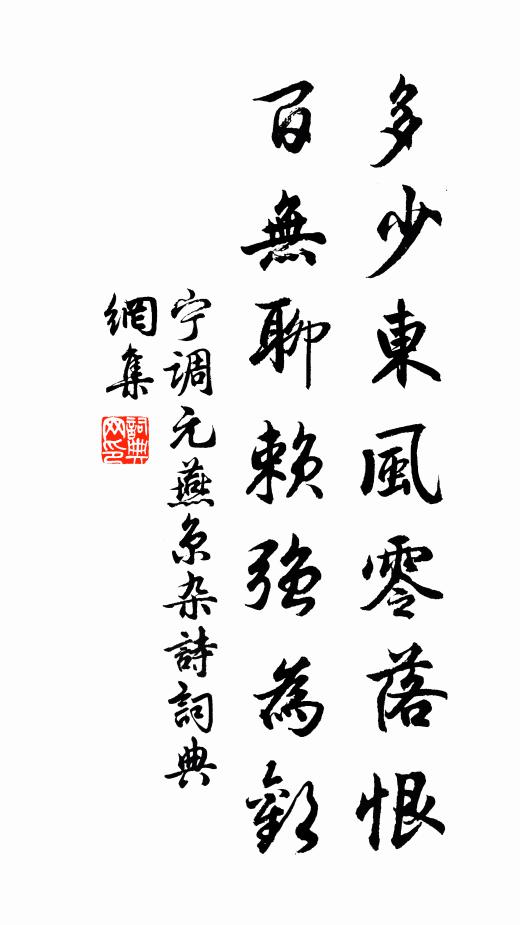 多少東風零落恨
百無聊賴強為歡
宁调元燕京杂詩詞典
網集
詞典
网印